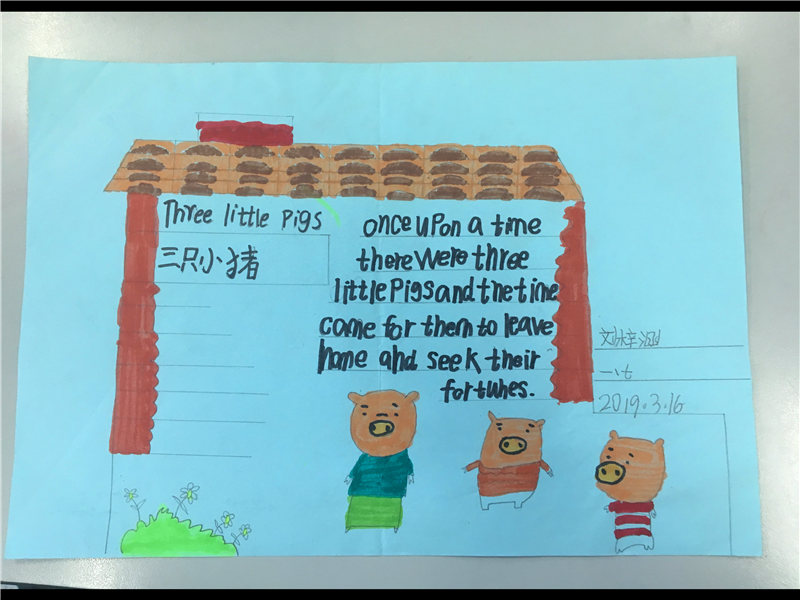 Three little pigs
三只小猪
once upon a time
there were three
little Pigs and the time
come for them to leave
home and seek their
fortunes.
2019.3.16